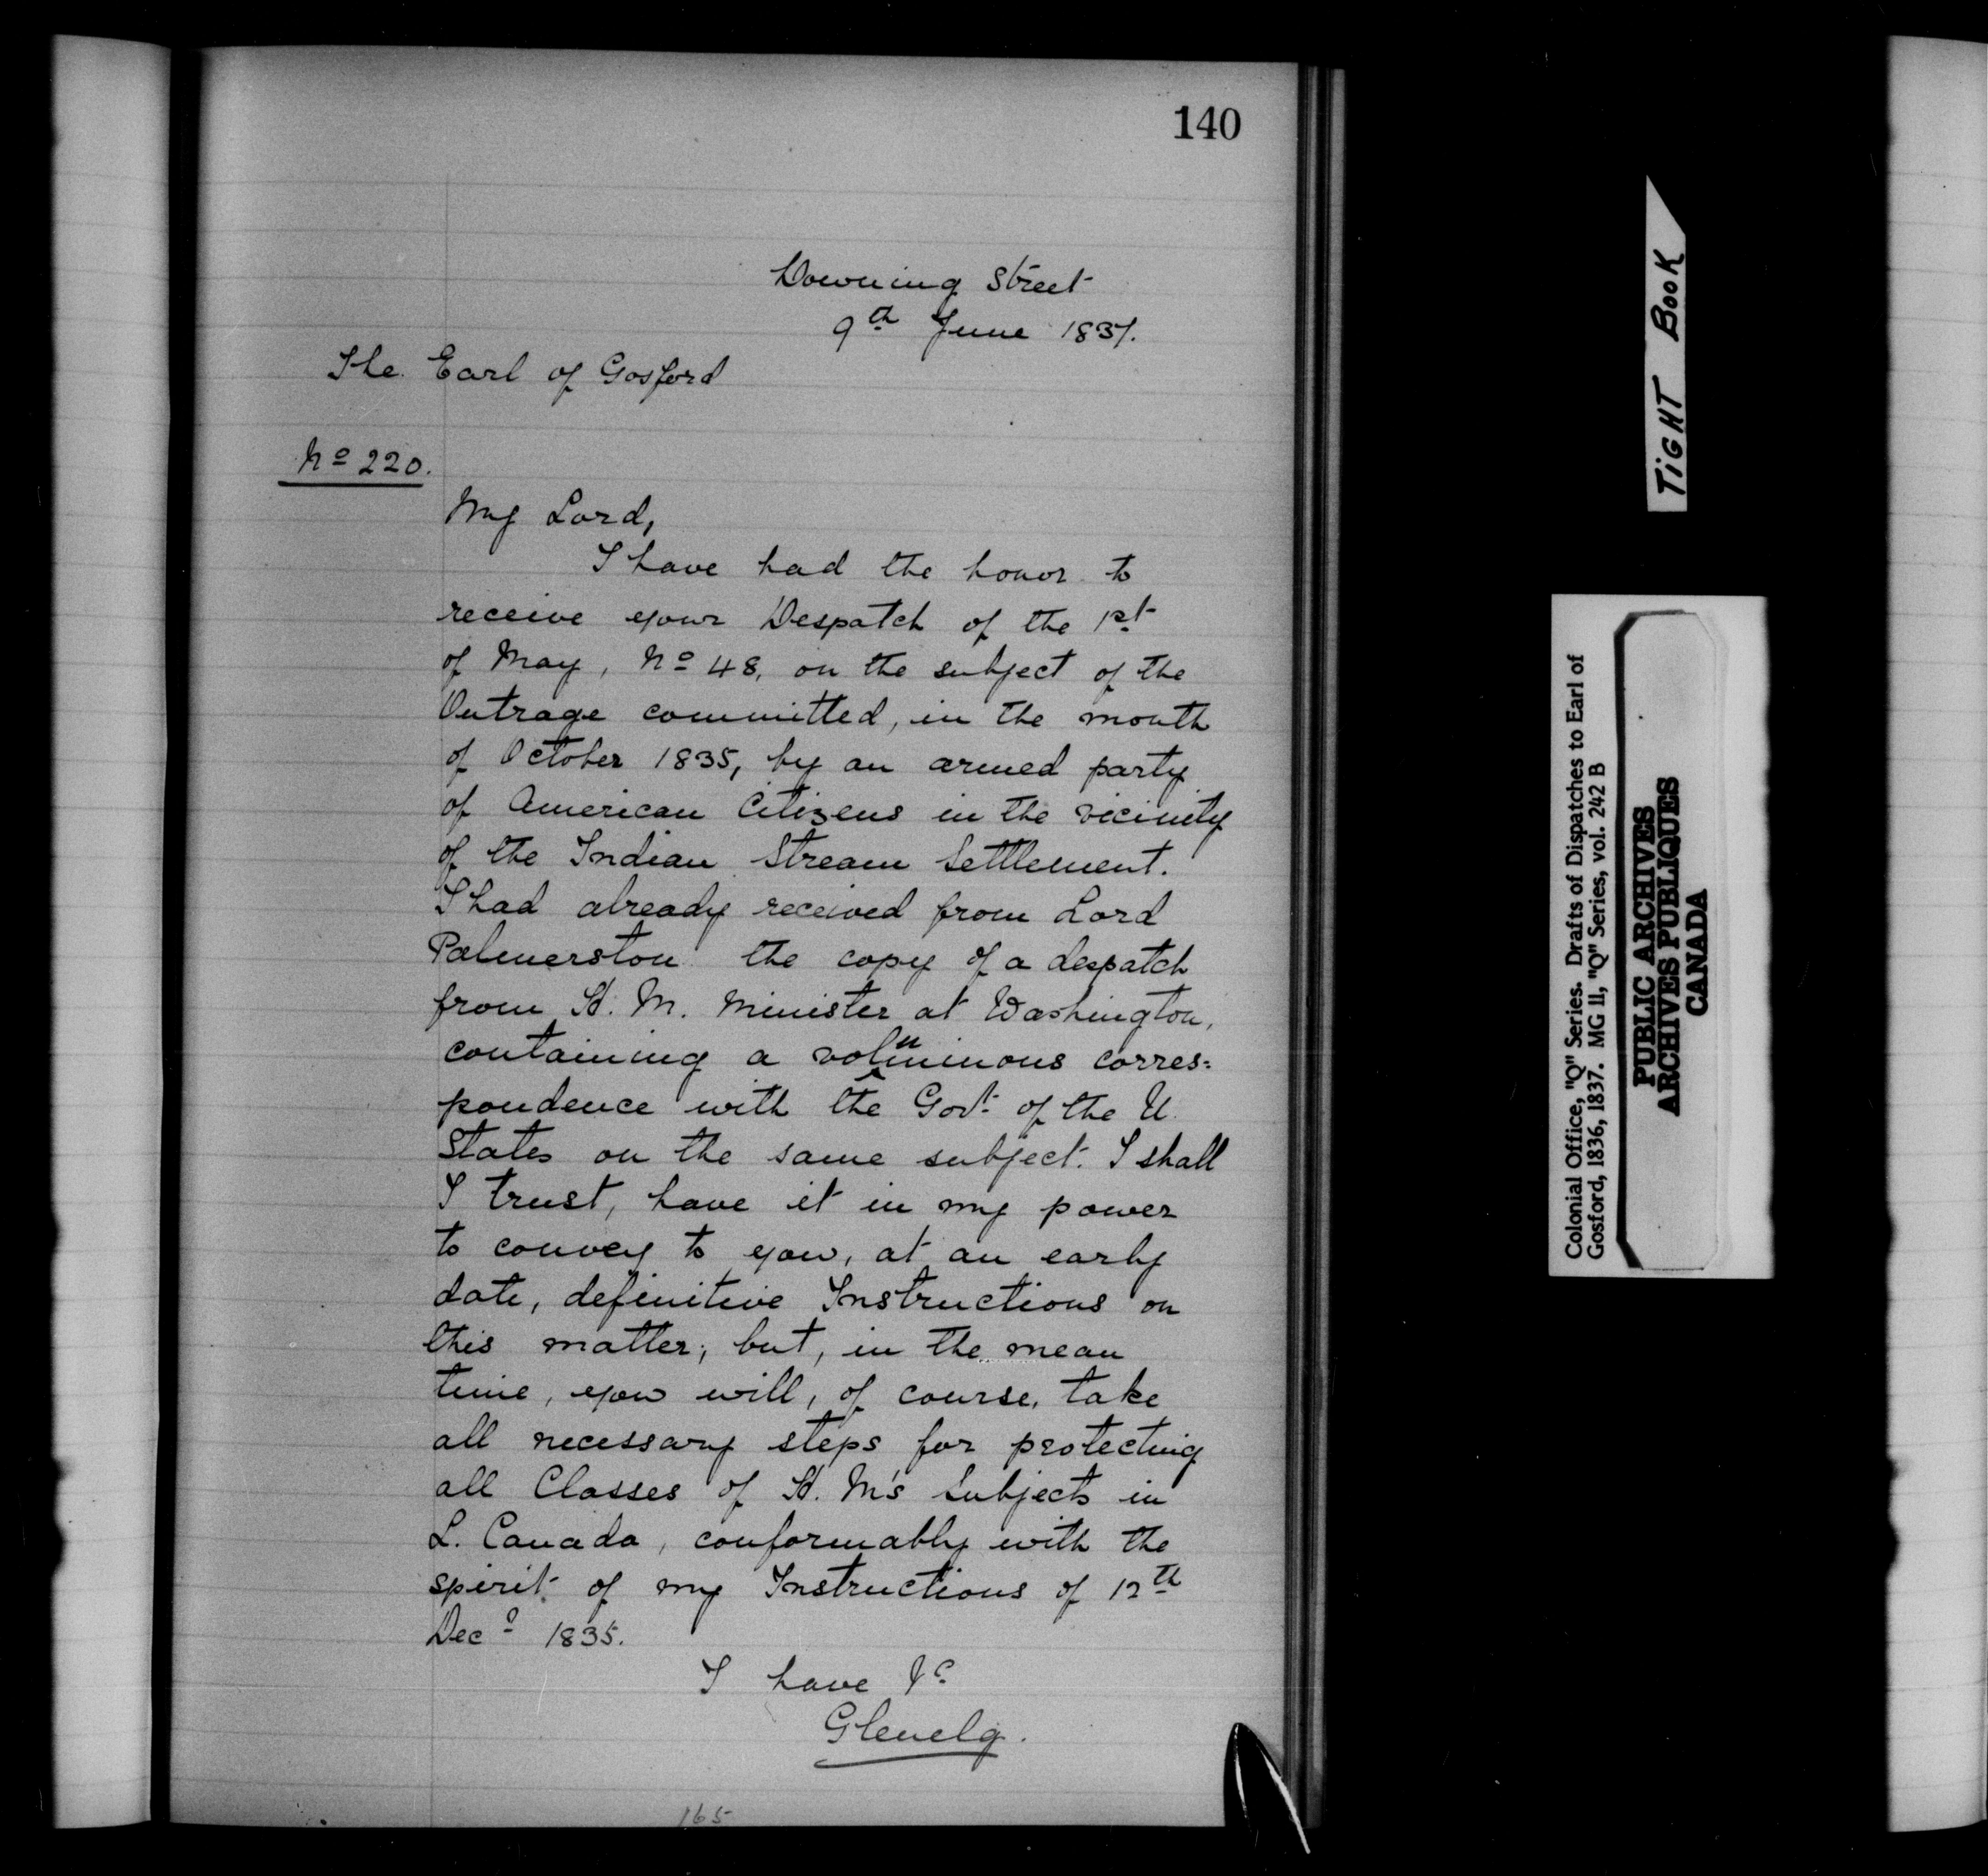 140
Downing Street
9th June 1837.
The Earl of Gosford
No 220.
My Lord,
I have had the honor to
receive your Despatch of the 1st
of May, No 48, on the subject of the
Outrage committed, in the month
of October 1835, by an armed party
of American Citizens in the vicinity
of the Indian Stream Settlement.
I had already received from Lord
Palmerston the copy of a despatch
from H. M. Minister at Washington,
containing a voluminous corres=
pondence with the Govt. of the U.
States on the same subject. I shall
I trust, have it in my power
to convey to you, at an early
date, definitive Instructions on
this matter; but, in the mean
time, you will, of course, take
all necessary steps for protecting
all Classes of H. M's Subjects in
L. Canada, conformably with the
spirit of my Instructions of 12th
Decr 1835.
I have &c
Glenelg.
165
TIGHT BOOK
Colonial Office, "Q" Series. Drafts of Dispatches to Earl of
Gosford, 1836, 1837. MG 11, "Q" Series, vol. 242 B
PUBLIC ARCHIVES
ARCHIVES PUBLIQUES
CANADA